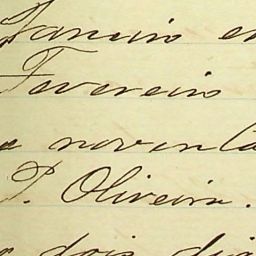 Janeiro e
Fevereiro
e noventa
P. Oliveira.
dois dia